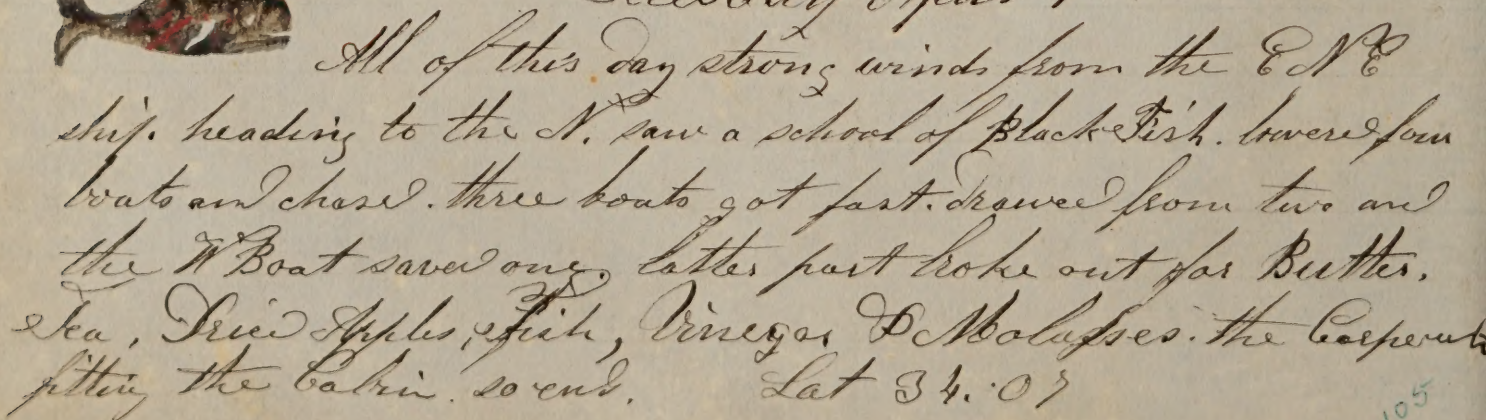 All of this day strong winds from the E N E
ship heading to the N. saw a school of Black Fish. lowered four
boats and chased. three boats got fast. drawed from two and
the W Boat saved one. latter part broke out for Butter.
Tea, Dried Apples, Fish, Vinegar & Molasses. the Carpenter
fitting the Cabin. so ends. Lat 34.07
105